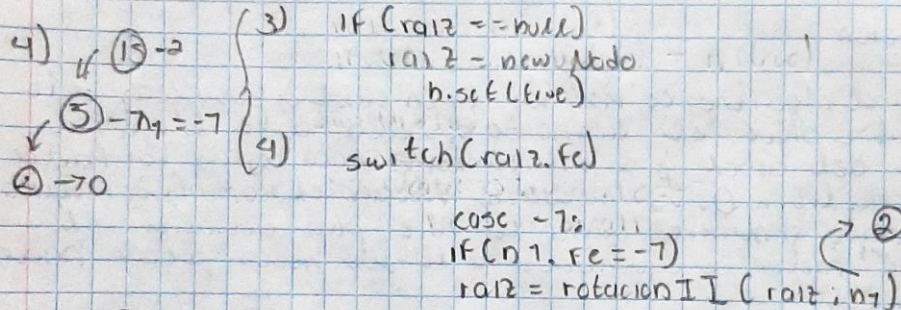 4) ↙ (13) -2
(5) - n1 = -1
↙
(2) → 0
3) if (raiz == null)
raiz = new Nodo
h.set(true)
4) switch(raiz.fe)
case -1:
if (n1.fe = -1) (2)
raiz = rotacionII (raiz, n1)